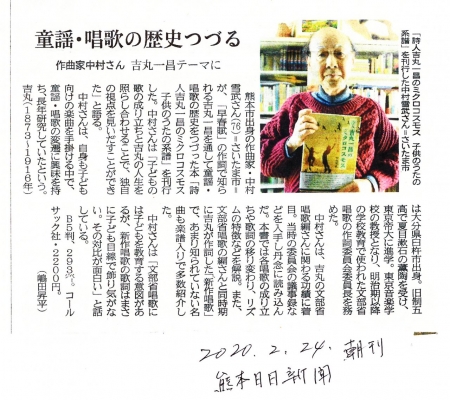 童謡・唱歌の歴史つづる
作曲家中村さん 吉丸一昌テーマに
「詩人吉丸一昌のミクロコスモス 子供のうたの
系譜」を刊行した中村雪武さん＝さいたま市
熊本市出身の作曲家・中村
雪武さん
＝さいたま市＝
が、「早春賦」の作詞で知ら
れる吉丸一昌を通して童謡・
唱歌の歴史をつづった本「詩
人吉丸一昌のミクロコスモス
子供のうたの系譜」を刊行
した。中村さんは「子どもの
歌の成り立ちと吉丸の人生を
照らし合わせることで、独自
の視点を見いだすことができ
た」と語る。
中村さんは、自身も子ども
向けの楽曲を手掛ける中で、
童謡・唱歌の変遷に興味を持
ち、長年研究していたという。
吉丸（1873〜1916年）
は大分県臼杵市出身。旧制五
高で夏目漱石の薫陶を受け、
東京帝大に進学。東京音楽学
校の教授となり、明治期以降
の学校教育で使われた文部省
唱歌の作詞委員会委員長を務
めた。
中村さんは、吉丸の文部省
唱歌編さんに関わる功績に着
目。当時の委員会の議事録な
どを入手し丹念に読み込ん
だ。本書では各唱歌の成り立
ちや歌詞の移り変わり、リズ
ムの特徴などを解説。また、
文部省唱歌の編さんと同時期
に吉丸が作詞した「新作唱歌」
で、あまり知られていない名
曲も楽譜入りで多数紹介し
た。
中村さんは「文部省唱歌に
は子どもを教育する意図があ
るが、新作唱歌の歌詞はまさ
に子ども目線で飾り気がな
い。その対比が面白い」と話
している。
B5判、293㌻。コール
サック社・2200円。
（亀田昇平）
2020. 2. 24. 朝刊
熊本日日新聞